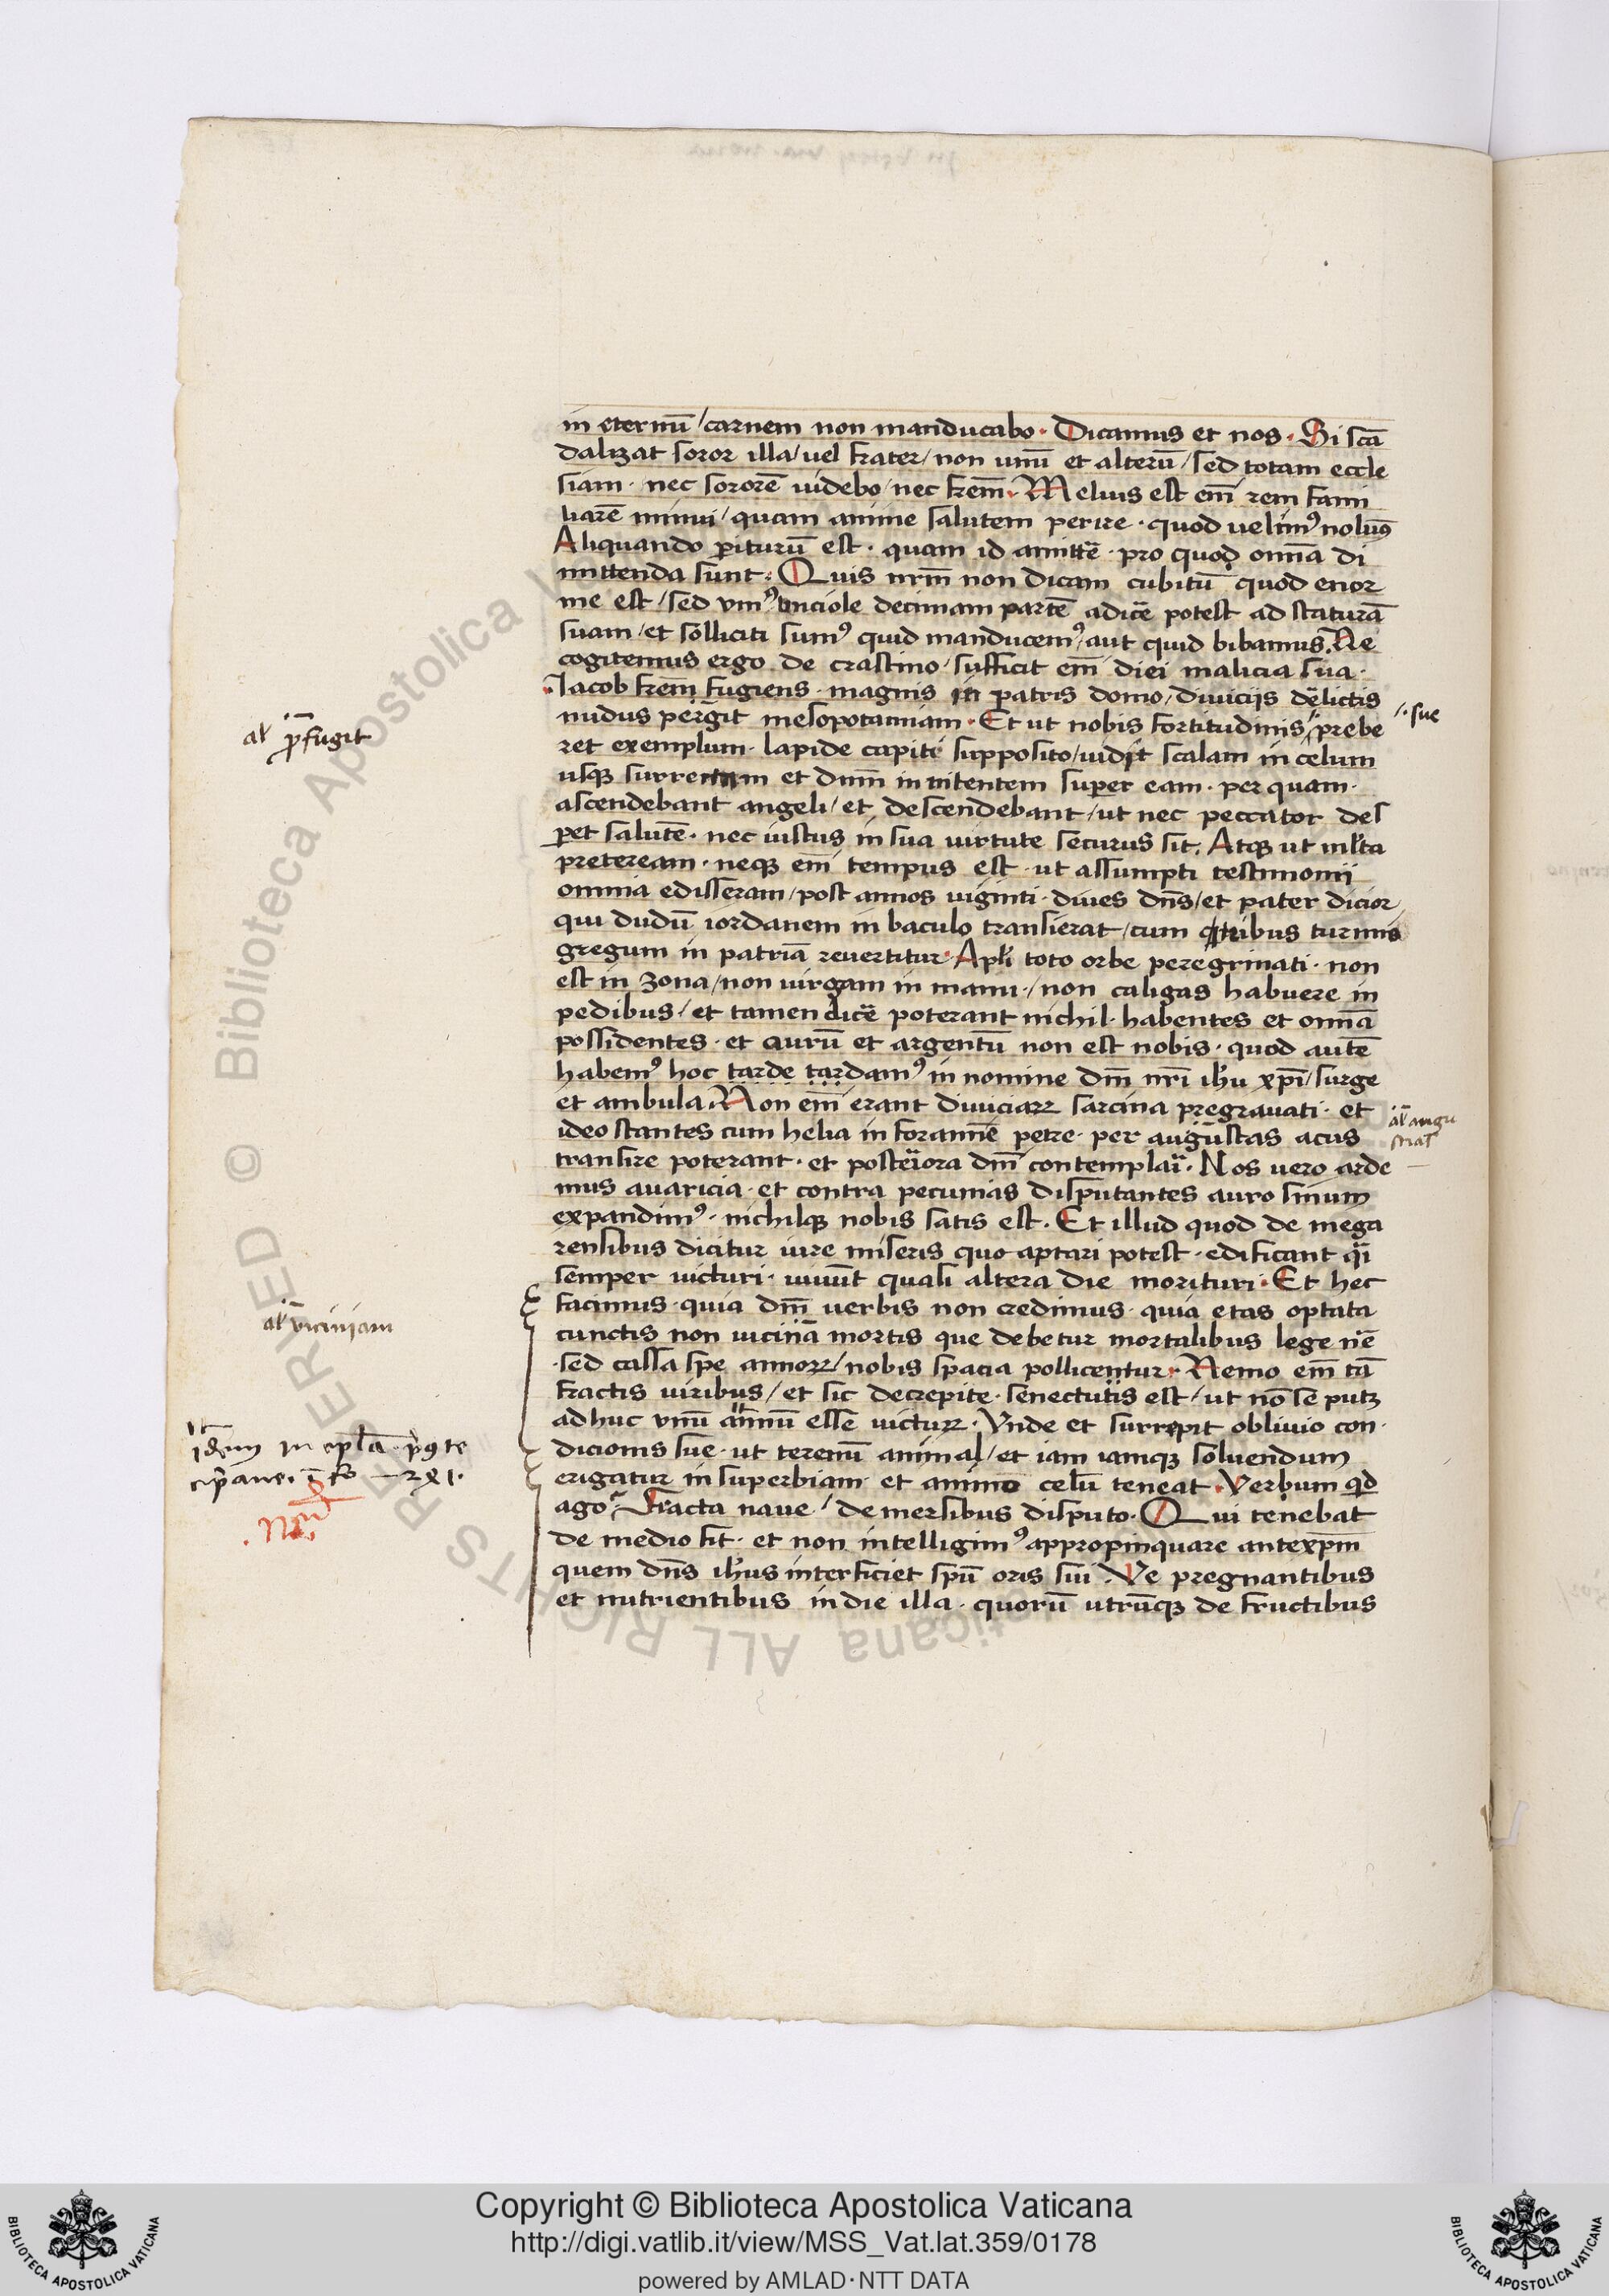 in eternū / carnem non manducabo · Dicamus et nos · Si scā
dalizat soror illa / uel frater / non unū et alterū / sed totam eccle
siam · nec sororē uidebo / nec frēm · Melius est em̄ rem fami
liarē minui / quam anime salutem perire · quod uelimꝰ nolimꝰ
Aliquando periturū est · quam id amittē · pro quo om̄ia di
mittenda sunt · Quis nrm̄ non dicam cubitū quod enor
me est / sed vniꝰ unciole decimam partē adicē potest ad staturā
suam / et solliciti sumꝰ quid manducemꝰ / aut quid bibamus. Ne
cogitemus ergo de crastino / sufficit em̄ diei malicia sua ·
Iacob frēm fugiens · magnis in patris domo / diuiciis dēlictis
al̄ p̄fugit
nudus pergit mesopotamiam · Et ut nobis fortitudinis / prebe
·/· sue
ret exemplum · lapide capiti supposito / uidit scalam in celum
usqꝫ surrectam et dnm̄ innitentem super eam · per quam ·
ascendebant angeli / et descendebant / ut nec peccator des
ꝑet salutē · nec iustus in sua uirtute securus sit. Atqꝫ ut ml̄ta
preteream · neqꝫ em̄ tempus est · ut assumpti testimonii
omnia edisseram / post annos uiginti · diues dn̄s / et pater dicior /
qui dudū iordanem in baculo transierat / cum tribus turmis
gregum in patriā reuertitur · Apl̄i toto orbe peregrinati · non
est in zona / non uirgam in manu · / non caligas habuere in
pedibus / et tamen dicē poterant nichil · habentes et om̄ia
possidentes · et aurū et argentū non est nobis · quod autē
habemꝰ hoc tarde tardamꝰ in nomine dnī nrī ihū xp̄i / surge
et ambula Non em̄ erant diuiciaꝝ sarcina pregrauati · et
ideo stantes cum helia in foraminē petre · per augustas acus
al̄ angu
stias
transire poterant · et posteriora dnī contemplari · Nos uero arde
mus auaricia · et contra pecunias disputantes auro sinum
expandimꝰ · nichilqꝫ nobis satis est. Et illud quod de mega
rensibus dicitur iure miseris quo aptari potest · edificant q̄i
semper uicturi · uiuūt quasi altera die morituri · Et hec
facimus · quia dnī uerbis non credimus · quia etas optata
al̄ viciniam
cunctis non uicinā mortis que debetur mortalibus lege nr̄e
· sed cassa spe annoꝝ / nobis spacia pollicentur · Nemo em̄ tā
fractis uiribus / et sic decrepite · senectutis est / ut nō se putꝫ
adhuc vnū annū esse uictuꝝ · Vnde et surrepit obliuio con ·
dicionis sue · ut terenū animal / et iam iamqꝫ soluendum
erigatur in superbiam · et animo celū teneat · Verbum qd
ago · Fracta naue / de mersibus disputo · Qui tenebat
de medio fit · et non intelligimꝰ appropinquare antexp̄m
quem dn̄s ihūs interficiet spū oris sui · Ve pregnantibus
et nutrientibus in die illa · quorū utrūqꝫ de fructibus
Copyright © Biblioteca Apostolica Vaticana
http://digi.vatlib.it/view/MSS_Vat.lat.359/0178
powered by AMLAD·NTT DATA
BIBLIOTECA APOSTOLICA VATICANA
BIBLIOTECA APOSTOLICA VATICANA